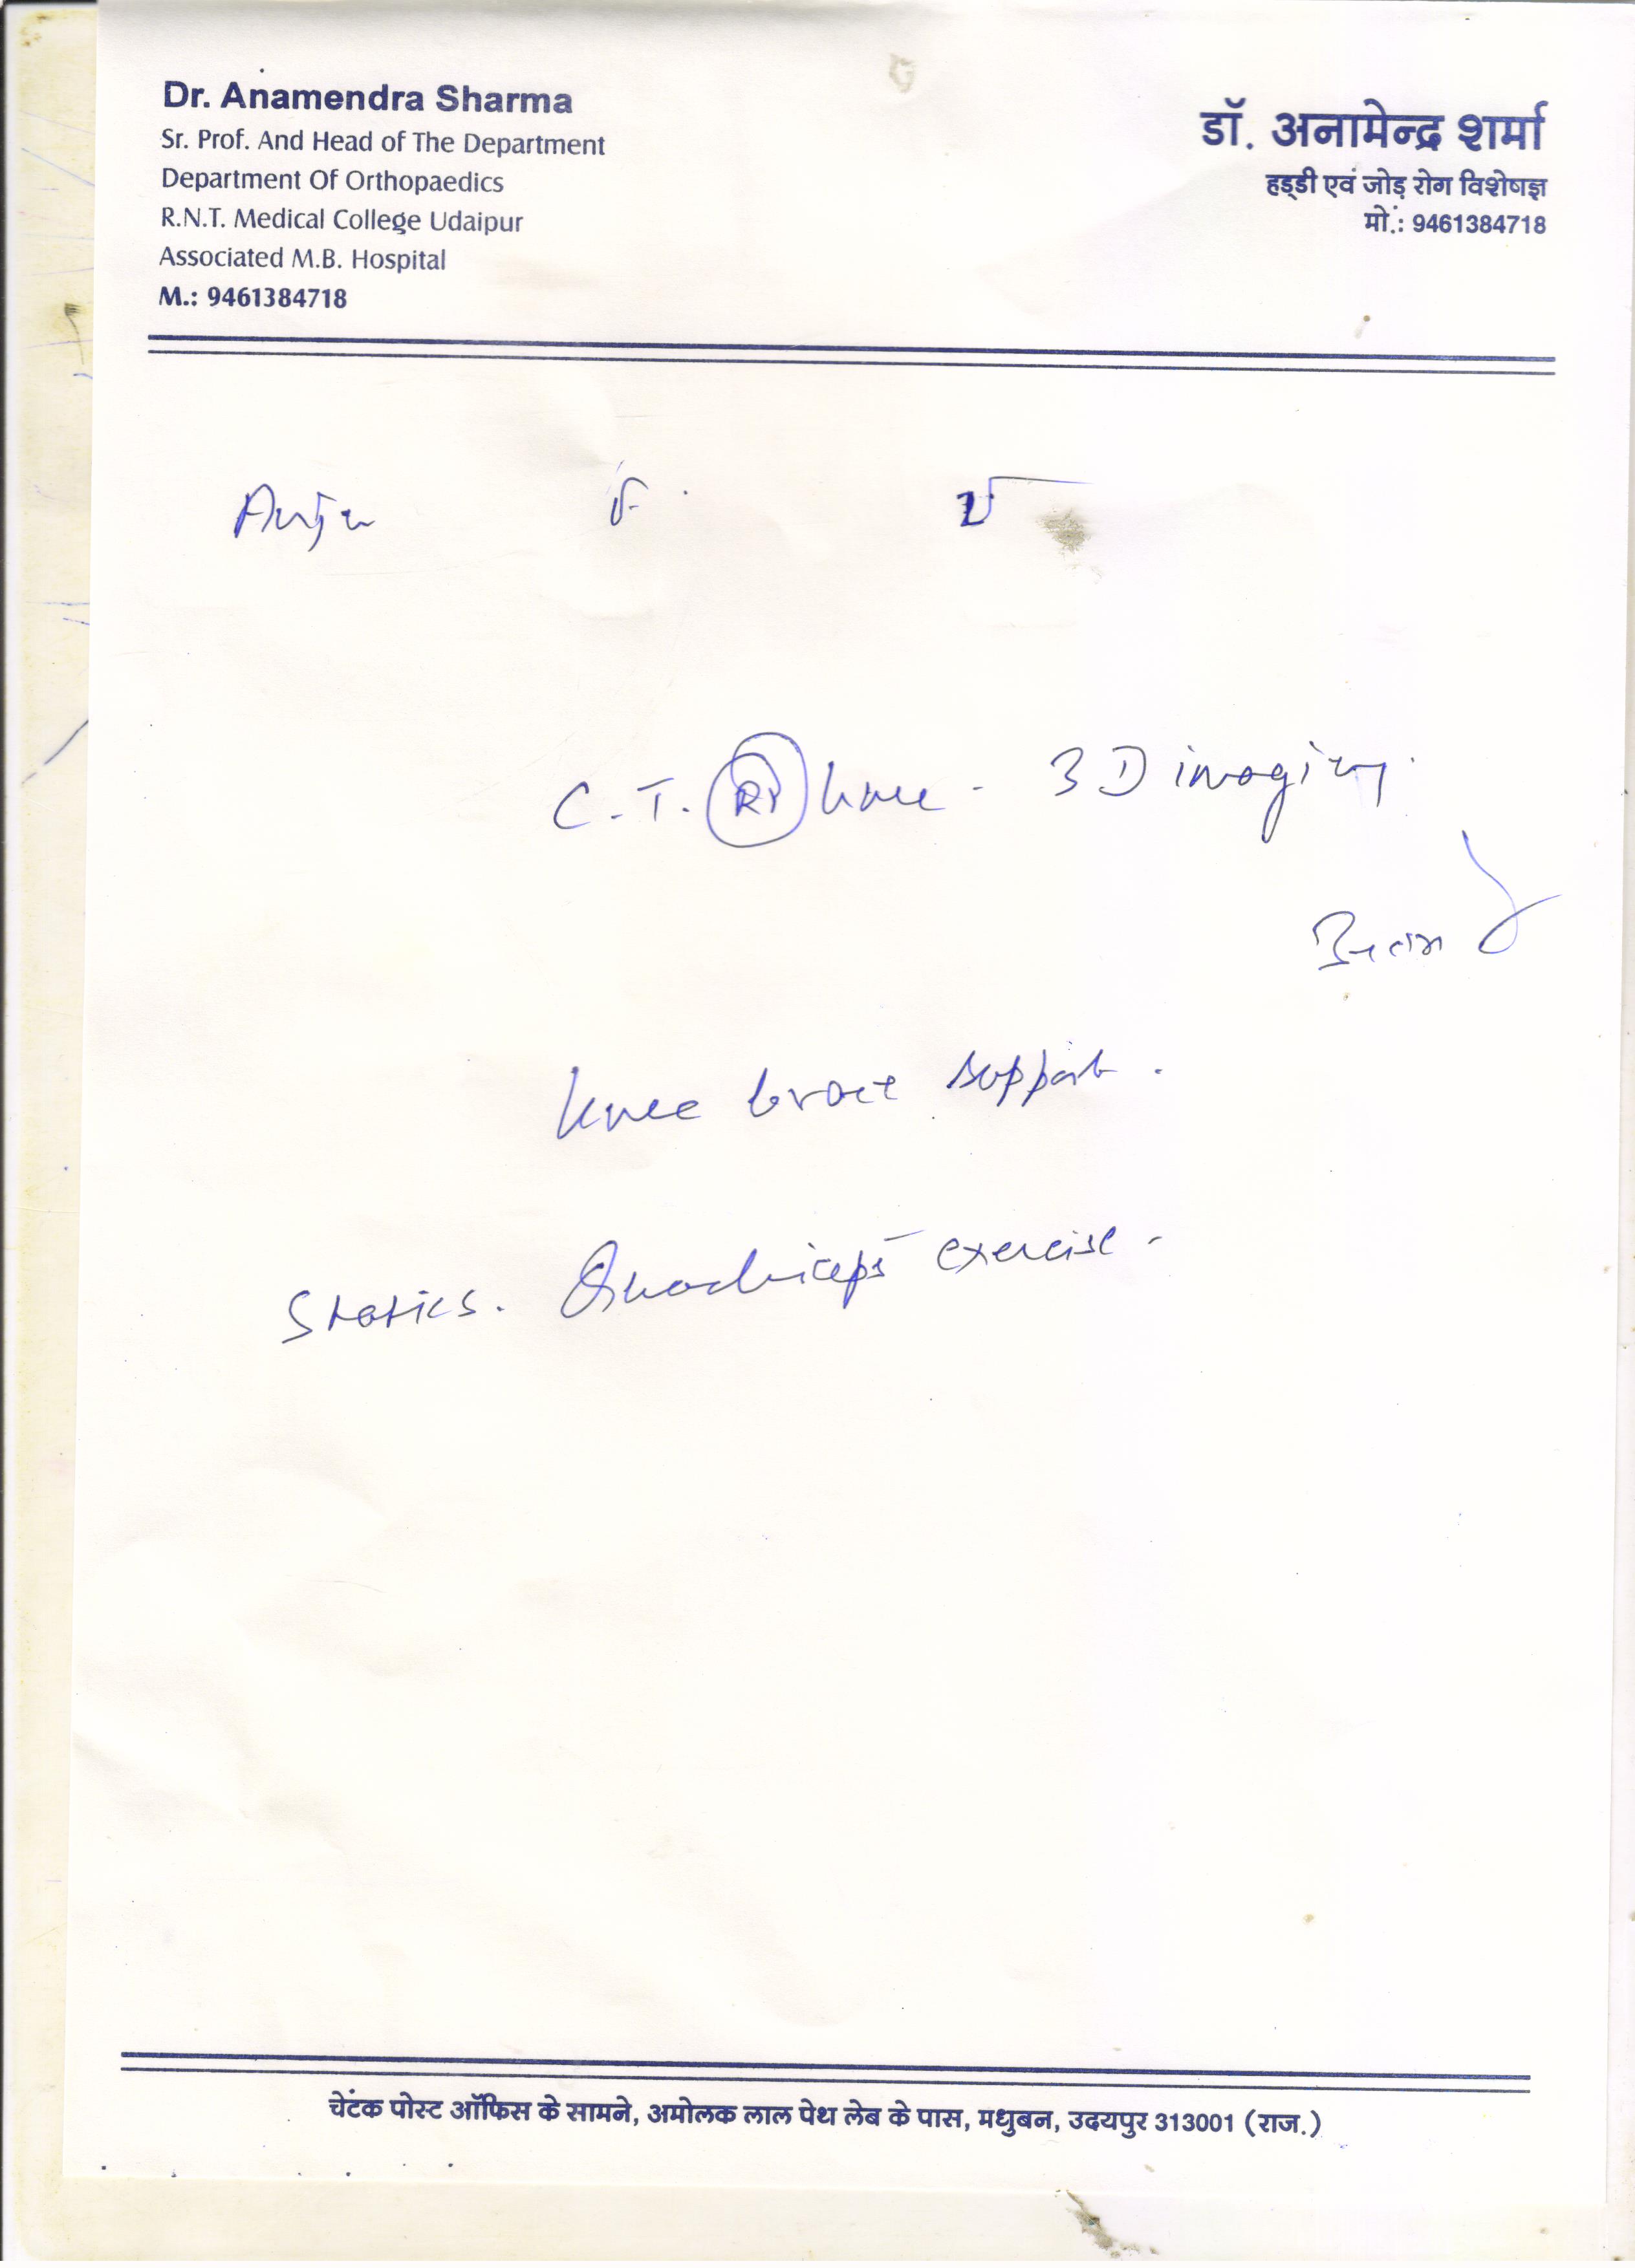 Dr. Anamendra Sharma
Sr. Prof. And Head of The Department
Department Of Orthopaedics
R.N.T. Medical College Udaipur
Associated M.B. Hospital
M.: 9461384718
डॉ. अनामेन्द्र शर्मा
हड्डी एवं जोड़ रोग विशेषज्ञ
मो.: 9461384718
Anju
C.T. Rt knee - 3D imaging.
knee brace support.
Statics. Quadriceps exercise.
चेटक पोस्ट ऑफिस के सामने, अमोलक लाल पेथ लेब के पास, मधुबन, उदयपुर 313001 (राज.)